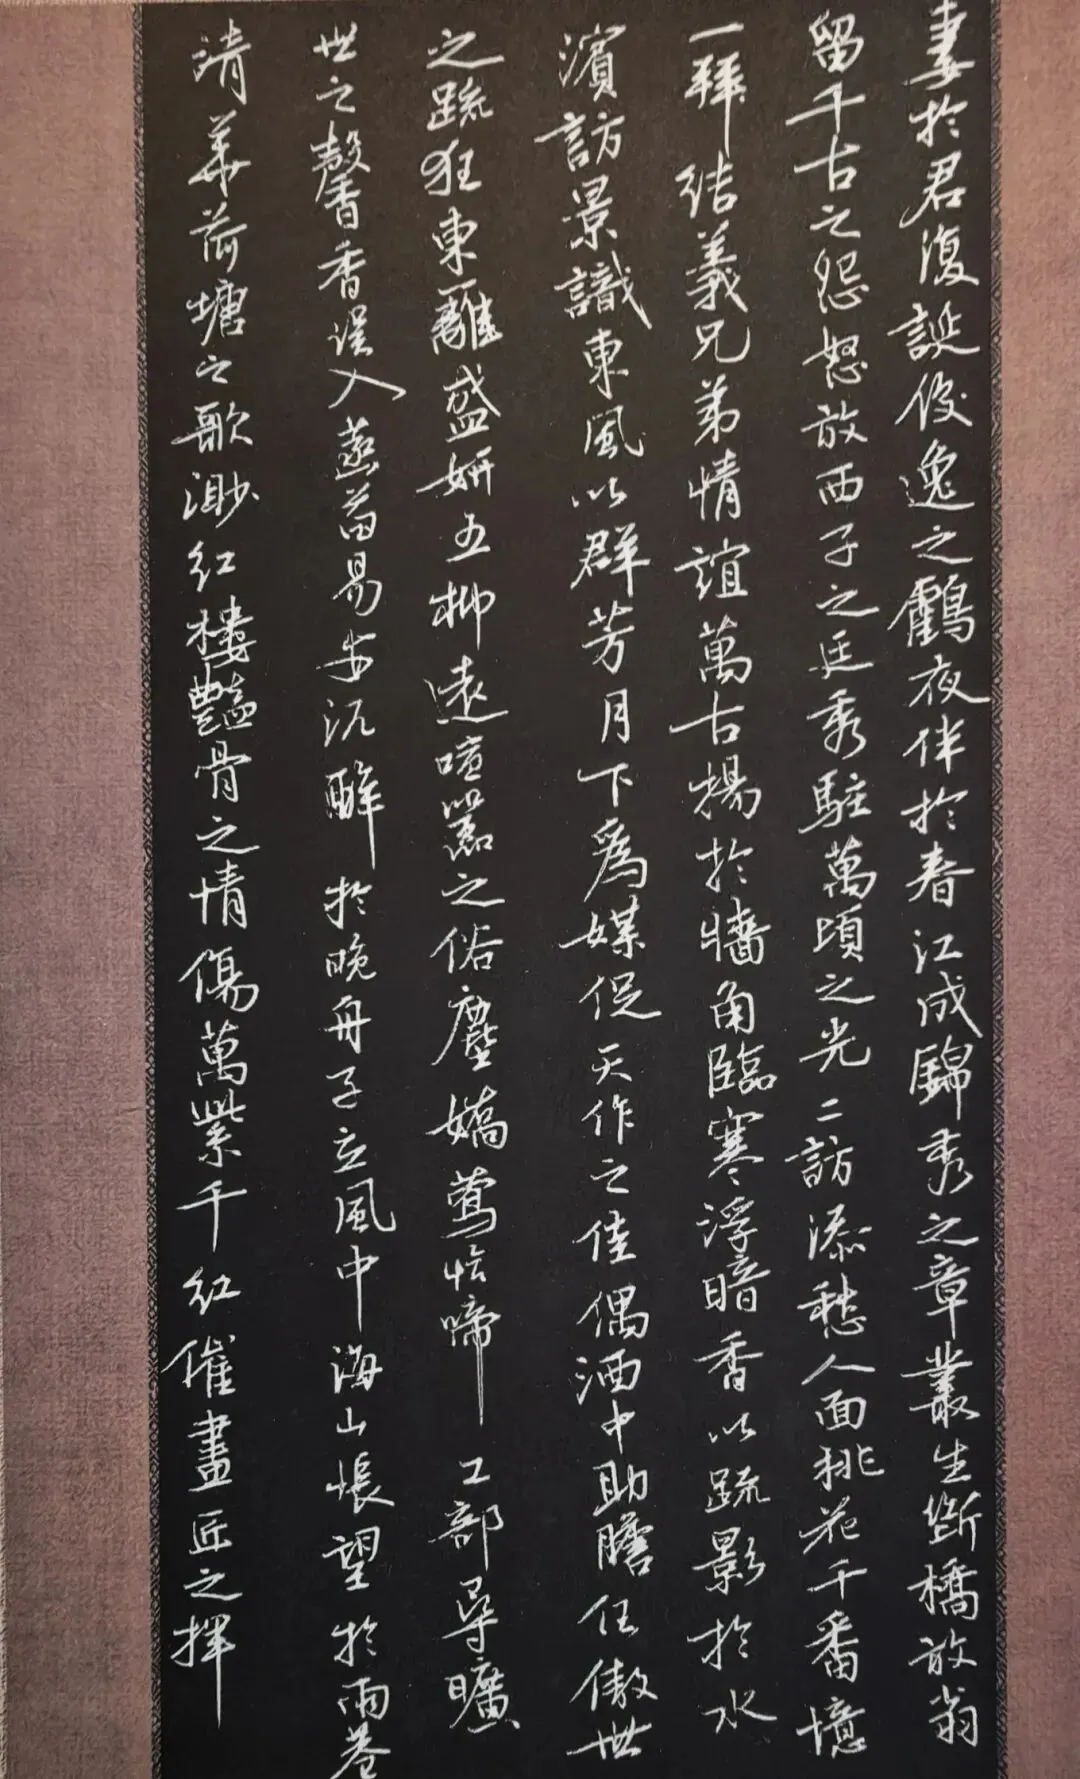 妻於君復誕俊逸之鶴夜伴於春江成錦秀之章叢生斷橋放翁
留千古之怨怒放西子之廷秀駐萬頃之光二訪添愁人面桃花千番憶
一拜結義兄弟情誼萬古揚於牆角臨寒浮暗香以疏影於水
濱訪景識東風以群芳月下為媒促天作之佳偶洒中助膽任傲世
之疏狂東離盛妍五柳遠喧囂之俗塵嬌鶯恰啼工部尋曠
世之馨香誤入藕苗易安沉醉於晚舟子立風中海山悵望於雨巷
清華荷塘之歌渺紅樓豔骨之情傷萬紫千紅催畫匠之揮